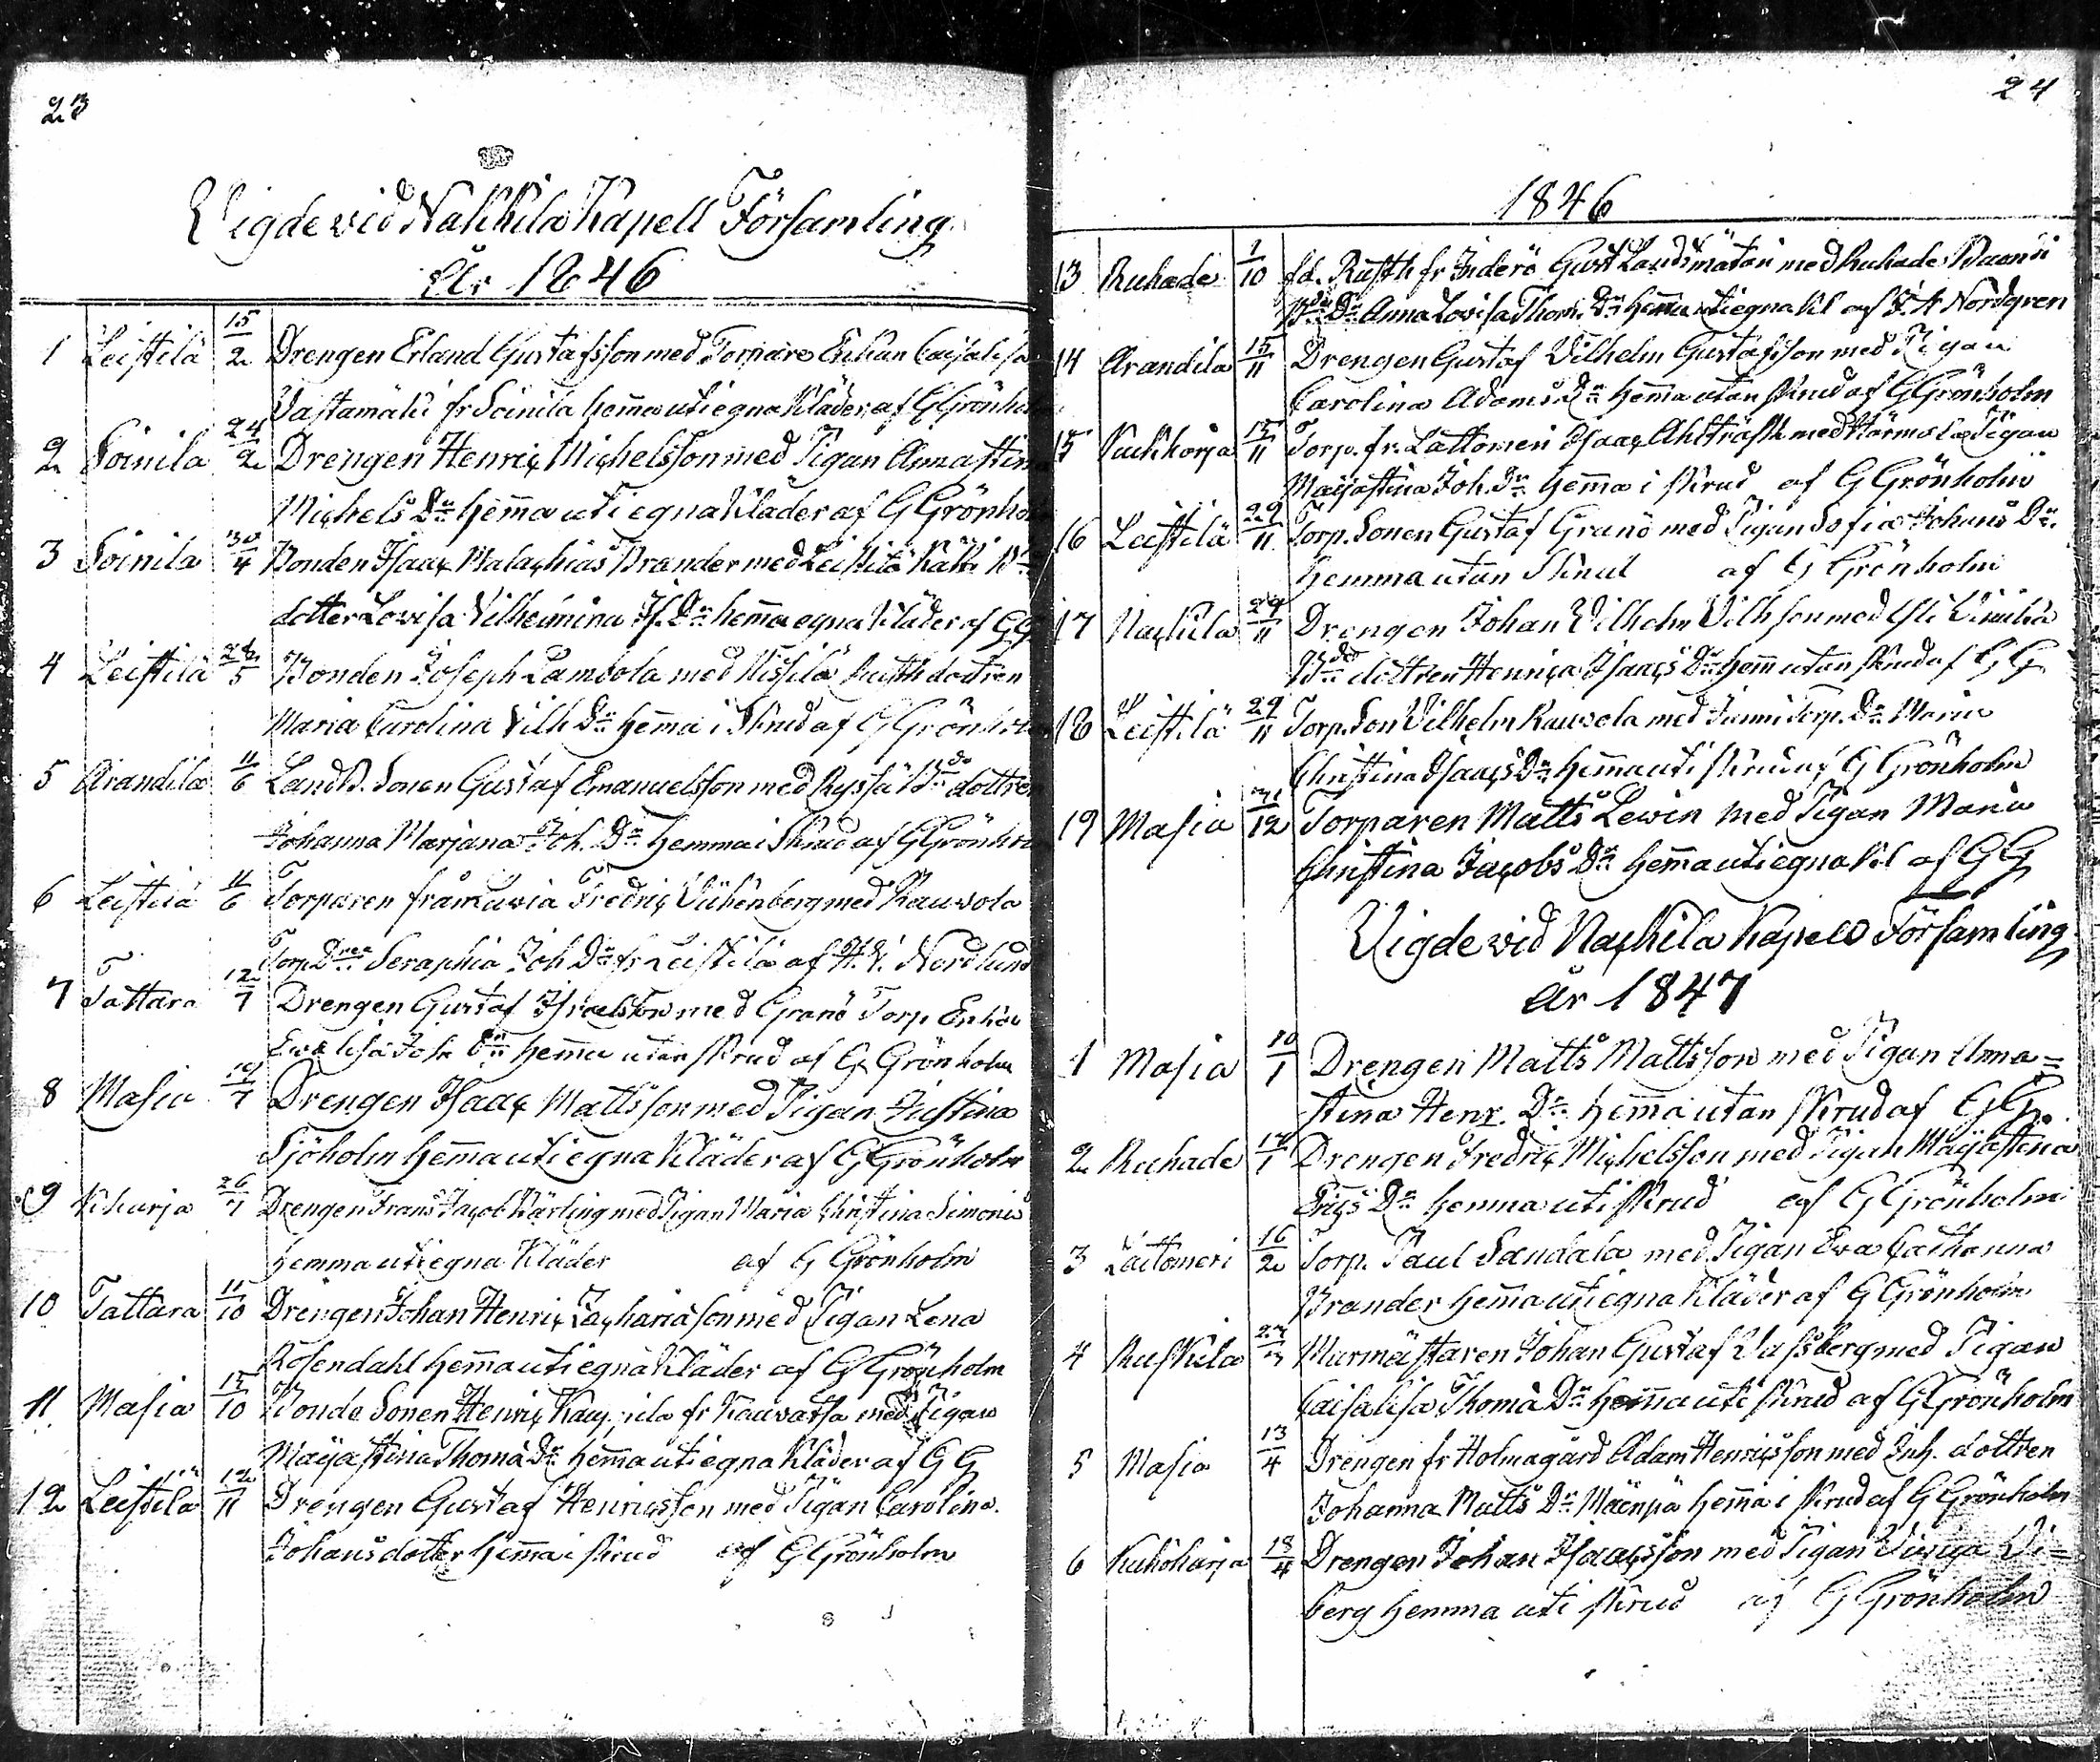 23
Vigde vid Nakkila Kapell Församling
År 1846
1 Leistilä 15/2 Drengen Erland Gustafsson med Torpare Enkan Caisa Lisa
Vastamäki fr Soinila hemma uti egna Kläder af G Grönholm
2 Soinila 24/2 Drengen Henric Michelsson med Pigan Anna Stina
Michels Dr hemma uti egna Kläder af G Grönholm
3 Soinila 30/4 Bonden Isaac Malachias Brander med Leistilä
dotter Lovisa Vilhelmina Is. Dr hemma egna Kläder af GG
4 Leistilä 5 Bonden Joseph Lambola med dottren
Maria Carolina Vilh Dr hemma i Skrud af G Grönholm
5 Arandila 11/6 Landb. Sonen Gustaf Emanuelsson med dottren
Johanna Marjana Joh. Dr Hemma i Skrud af G Grönholm
6 Leistilä 11/6 Torparen från Luvia Fredric med Rauvola
Torp Seraphia Joh Dr fr Leistilä af Nordlund
7 Tattara 12/7 Drengen Gustaf Israelsson med Granö Torp Enkan
Eva Lisa Joh Dr hemma utan skrud af G Grönholm
8 Masia 19/7 Drengen Isaac Mattsson med Pigan Justina
Sjöholm hemma uti egna Kläder af G Grönholm
9 26/7 Drengen Frans Jacob Kärling med Pigan Maria Christina Simonis
hemma uti egna Kläder af G Grönholm
10 Tattara 11/10 Drengen Johan Henric Zachariasson med Pigan Lena
Rosendahl hemma uti egna Kläder af G Grönholm
11 Masia 15/10 Bonde Sonen Henric fr Kauvatsa med Pigan
Maijastina Thoma Dr hemma uti egna Kläder af GG
12 Leistilä 12/11 Drengen Gustaf Henricsson med Pigan Carolina
Johansdotter hemma i skrud af G Grönholm
24
1846
13 Ruhade 1/10 fd. Rusth fr Inderö Gust med Ruhade
Dr Anna Lovisa Thom. Dr hemma uti egna Kl af Nordgren
14 Arandila 15/11 Drengen Gustaf Vilhelm Gustafsson med Pigan
Carolina Adams Dr hemma utan skrud af G Grönholm
15 15/11 Torp. fr. Lattomeri Isaac med Pigan
Maijastina Joh. Dr hemma i skrud af G Grönholm
16 Leistilä 29/11 Torp. Sonen Gustaf Granö med Pigan Sofia Johans Dr
hemma utan Skrud af G Grönholm
17 Nackila 29/11 Drengen Johan Vilhelm Vilhsson med
dottren Henrica Isaacs Dr hem utan skrud af GG
18 Leistilä 29/11 Torp. Son Vilhelm Rauvola med Torp. Dr Maria
Christina Isaacs Dr hemma uti skrud af G Grönholm
19 Masia 12 Torparen Matts Lewin med Pigan Maria
Christina Jacobs Dr hemma uti egna Kl af GG
Vigde vid Nackila Kapell Församling
År 1847
1 Masia 10/1 Drengen Matts Mattsson med Pigan Anna=
stina Henr. Dr hemma utan skrud af GG.
2 Ruhade 17/1 Drengen Fredric Michelsson med Pigan Maijastina
Erics Dr hemma uti skrud af G Grönholm
3 Lattomeri 16/2 Torp. Paul Sandala med Pigan Eva Catharina
Brander hemma uti egna Kläder af G Grönholm
4 Ruskila Murmästaren Johan Gustaf Vassberg med Pigan
Caisa Lisa Thoma Dr hemma uti skrud af G Grönholm
5 Masia 13/4 Drengen fr Holmagård Adam Henricsson med Inh. dottren
Johanna Matts Dr Mäenpä hemma i skrud af G Grönholm
6 18/4 Drengen Johan Isaacsson med Pigan Vi=
berg hemma uti skrud af G Grönholm